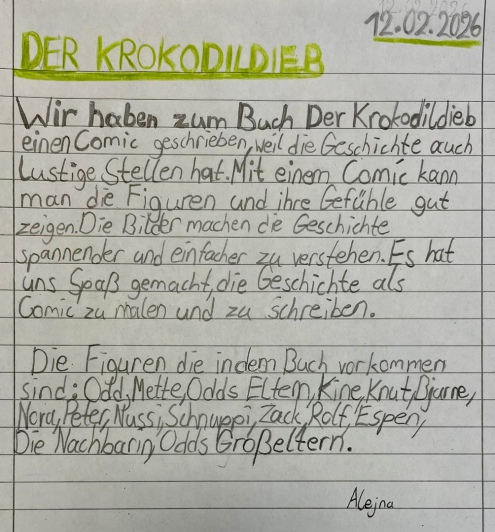 12.02.2026
DER KROKODILDIEB
Wir haben zum Buch Der Krokodildieb
einen Comic geschrieben, weil die Geschichte auch
Lustige Stellen hat. Mit einem Comic kann
man die Figuren und ihre Gefühle gut
zeigen. Die Bilder machen die Geschichte
spannender und einfacher zu verstehen. Es hat
uns Spaß gemacht, die Geschichte als
Comic zu malen und zu schreiben.
Die Figuren die indem Buch vorkommen
sind: Odd, Mette, Odds Eltern, Kine, Knut, Bjarne,
Nora, Peter, Nussi, Schnuppi, Zack, Rolf, Espen,
Die Nachbarin, Odds Großeltern.
Alejna